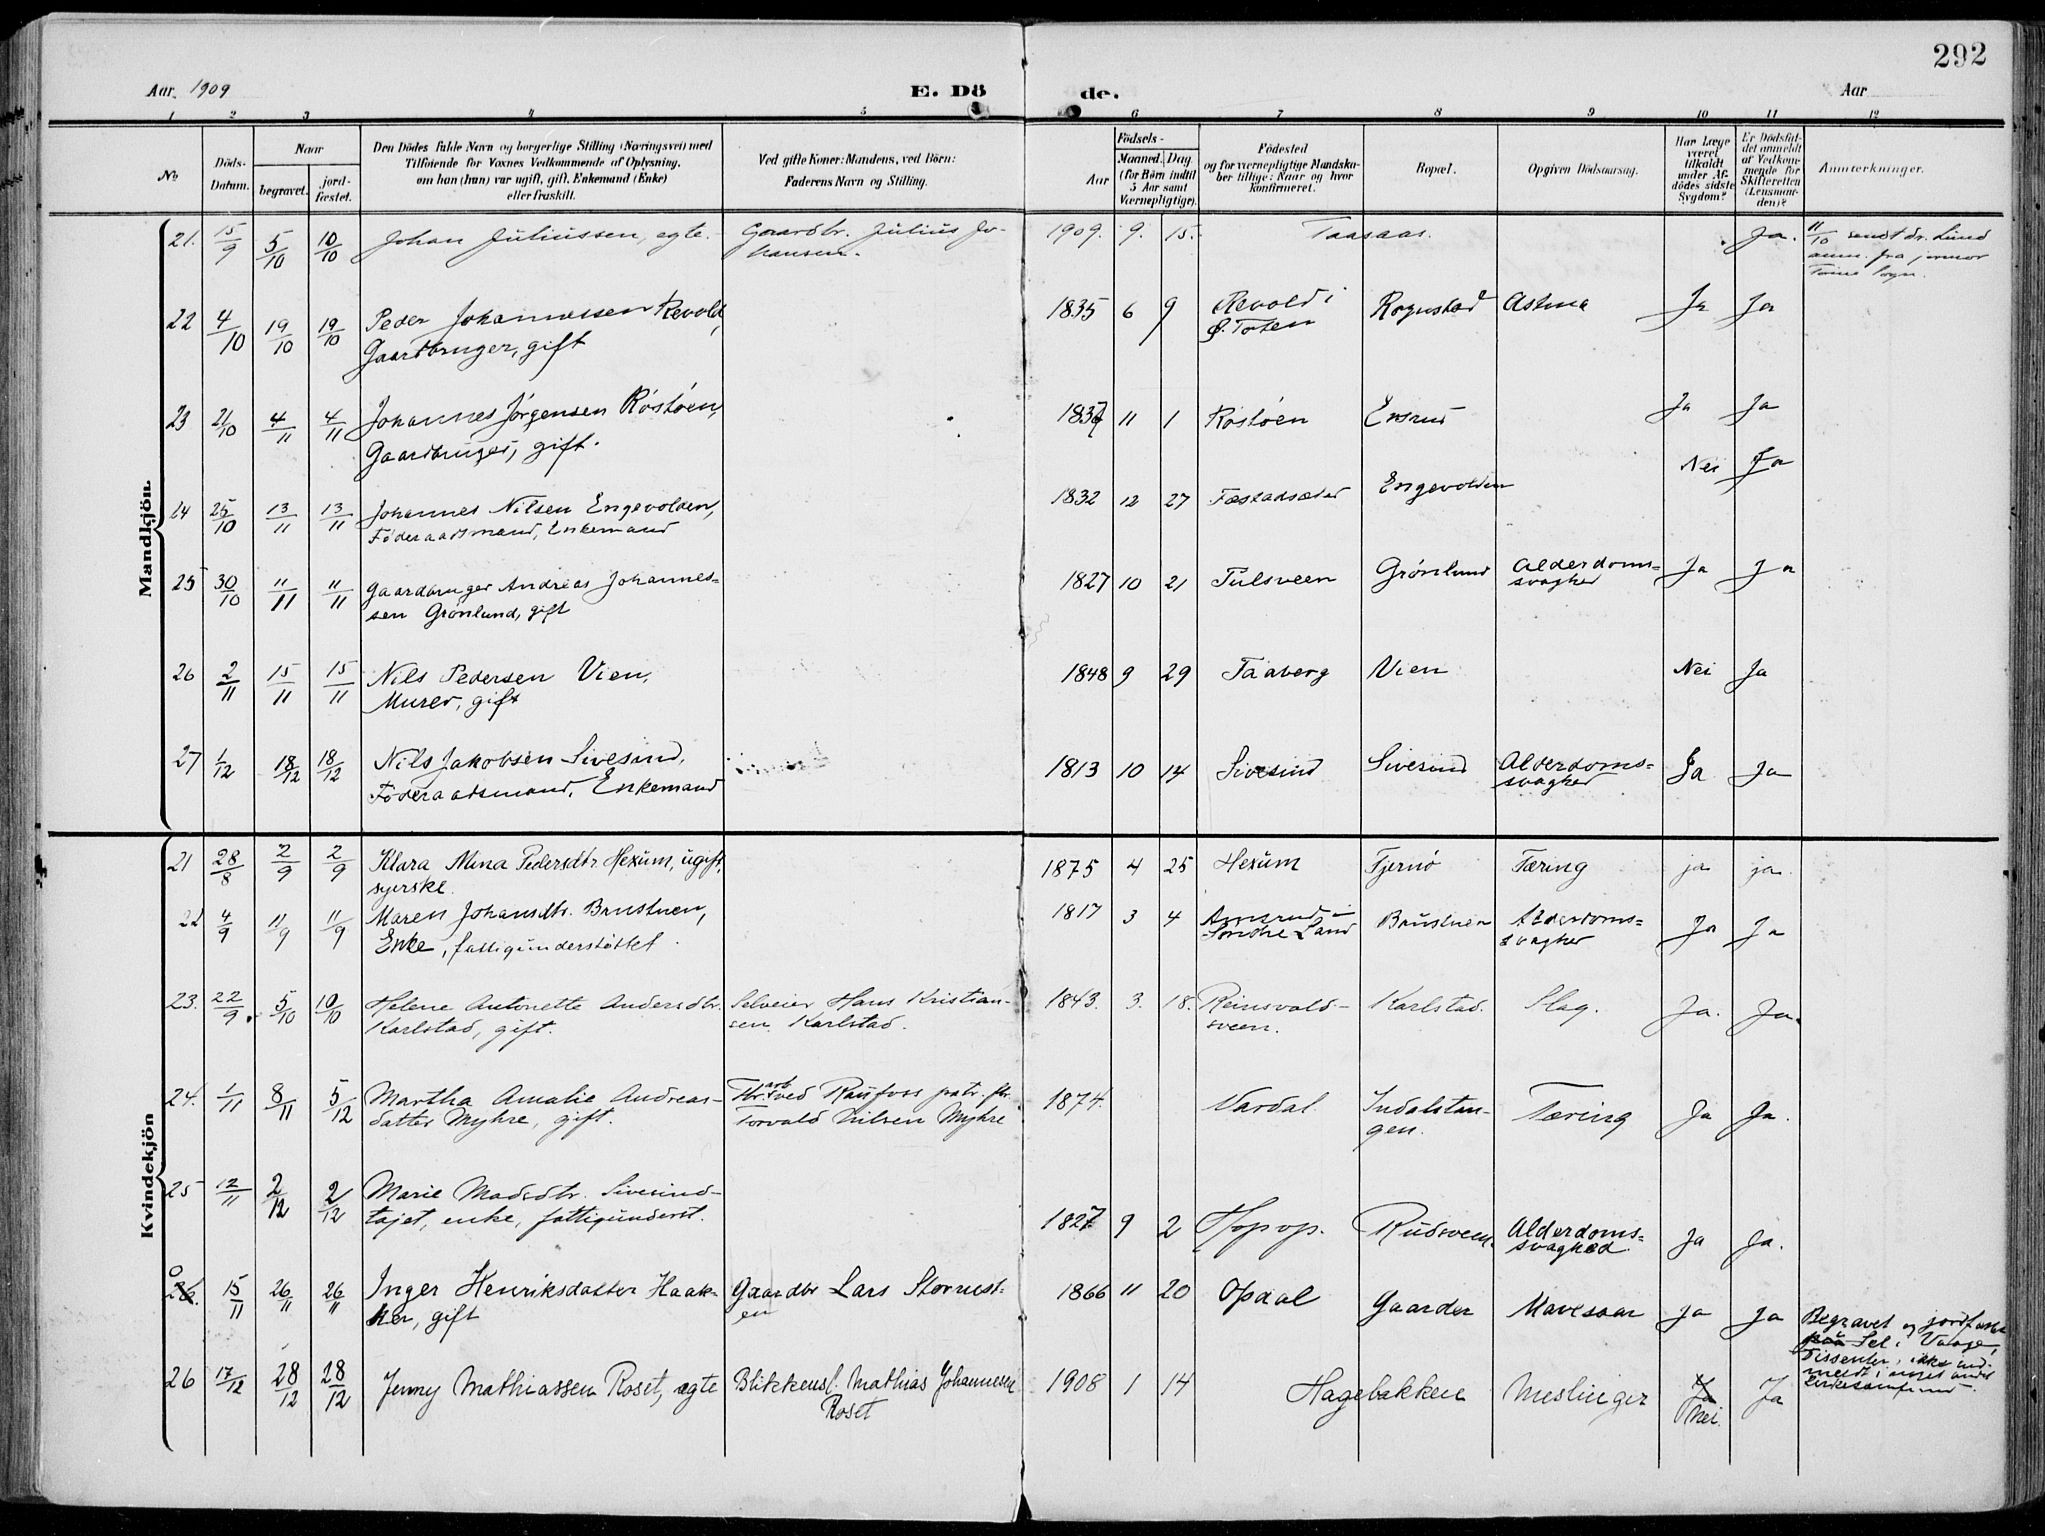 292
Aar 1909 E. Dö de. Aar
1 2 3 4 5 6 7 8 9 10 11 12
No. Döds-Datum. Naar begravet. jordfæstet. Den Dödes fulde Navn og borgerlige Stilling (Næringsvei) med Tilföiende for Voxnes Vedkommende af Oplysning, om han (hun) var ugift, gift, Enkemand (Enke) eller fraskilt. Ved gifte Koner: Mandens, ved Börn: Faderens Navn og Stilling. Aar Födsels- Maaned. Dag. (for Börn indtil 5 Aar samt Værnepligtige). Födested og for værnepligtige Mandskaber tillige: Naar og hvor konfirmeret. Bopæl. Opgiven Dödsaarsag. Har Læge været tilkaldt under Afdödes sidste Sygdom? Er Dödsfaldet anmeldt af Vedkommende for Skifteretten (Lensmanden)? Anmærkninger.
Mandkjön.
21. 15/9 5/10 10/10 Johan Juliussen, ægte. Gaardbr. Julius Jo- 1909. 9. 15. Taasaas. Ja. 11/10 sendt dr. Lund
hansen. anm. fra
sogn.
22 4/10 19/10 19/10 Peder Johannessen Revold, 1835 6 9 Revold i Rognstad Astma Ja Ja
Gaardbruger, gift Ø. Toten
23 21/10 4/11 4/11 Johannes Jörgensen Röstöen, 1837 11 1 Röstöen Ensrud Ja Ja
Gaardbruger, gift.
24 25/10 13/11 13/11 Johannes Nilsen Engevolden, 1832 12 27 Fæstadsæter Engevolden Nei Ja
Föderaadsmand, Enkemand
25 30/10 11/11 11/11 Gaardbruger Andreas Johannes- 1827 10 21 Tulsveen Grönlund Alderdoms- Ja Ja
sen Grönlund, gift svaghed
26 2/11 15/11 15/11 Nils Pedersen Vien, 1848 9 29 Faaberg Vien Nei Ja
Murer, gift
27 1/12 18/12 18/12 Nils Jakobsen Sivesind, 1813 10 14 Sivesind Sivesind Alderdoms- Ja Ja
Föderaadsmand, Enkemand svaghed
Kvindekjön
21 28/8 2/9 2/9 Klara Mina Pedersdtr Hexum, ugift, 1875 4 25 Hexum Fjernö Tæring ja ja.
syerske.
22 4/9 11/9 11/9 Maren Johansdtr. Brustuen, 1817 3 4 Amsrud i Brustuen Alderdoms- Ja Ja
Enke, fattigunderstöttet. Söndre Land svaghed
23. 22/9 5/10 10/10 Helene Antonette Andersdtr. Selveier Hans Kristian- 1843. 3. 18. Reinsvold- Karlstad. Slag. Ja. Ja.
Karlstad, gift. sen Karlstad. sveen.
24. 1/11 8/11 5/12 Martha Amalie Andreas- arb ved Raufoss patr. fbr. 1874. Vardal. Indalstan- Tæring Ja Ja.
datter Myhre, gift. Torvald Nilsen Myhre gen.
25 12/11 2/12 2/12 Marie Madsdtr. Sivesind-
tajet, enke, fattigunderst. 1827 9 2 Rudsveen. Alderdoms- Ja Ja.
svaghed.
26. 15/11 26/11 26/11 Inger Henriksdatter Haak- Gaardbr Lars Stornest- 1866 11 20 Opdal Gaarder Mavesaar Ja Ja Begravet og jordfæstet
ker, gift en paa Sel i Vaage,
Dissenter, ikke ind-
meldt i noget andet
kirkesamfund.
26 17/12 28/12 28/12 Jenny Mathiassen Roset, ægte Blikkensl. Mathias Johannesen 1908 1 14 Hagebakken Meslinger Ja Ja
Roset Nei.